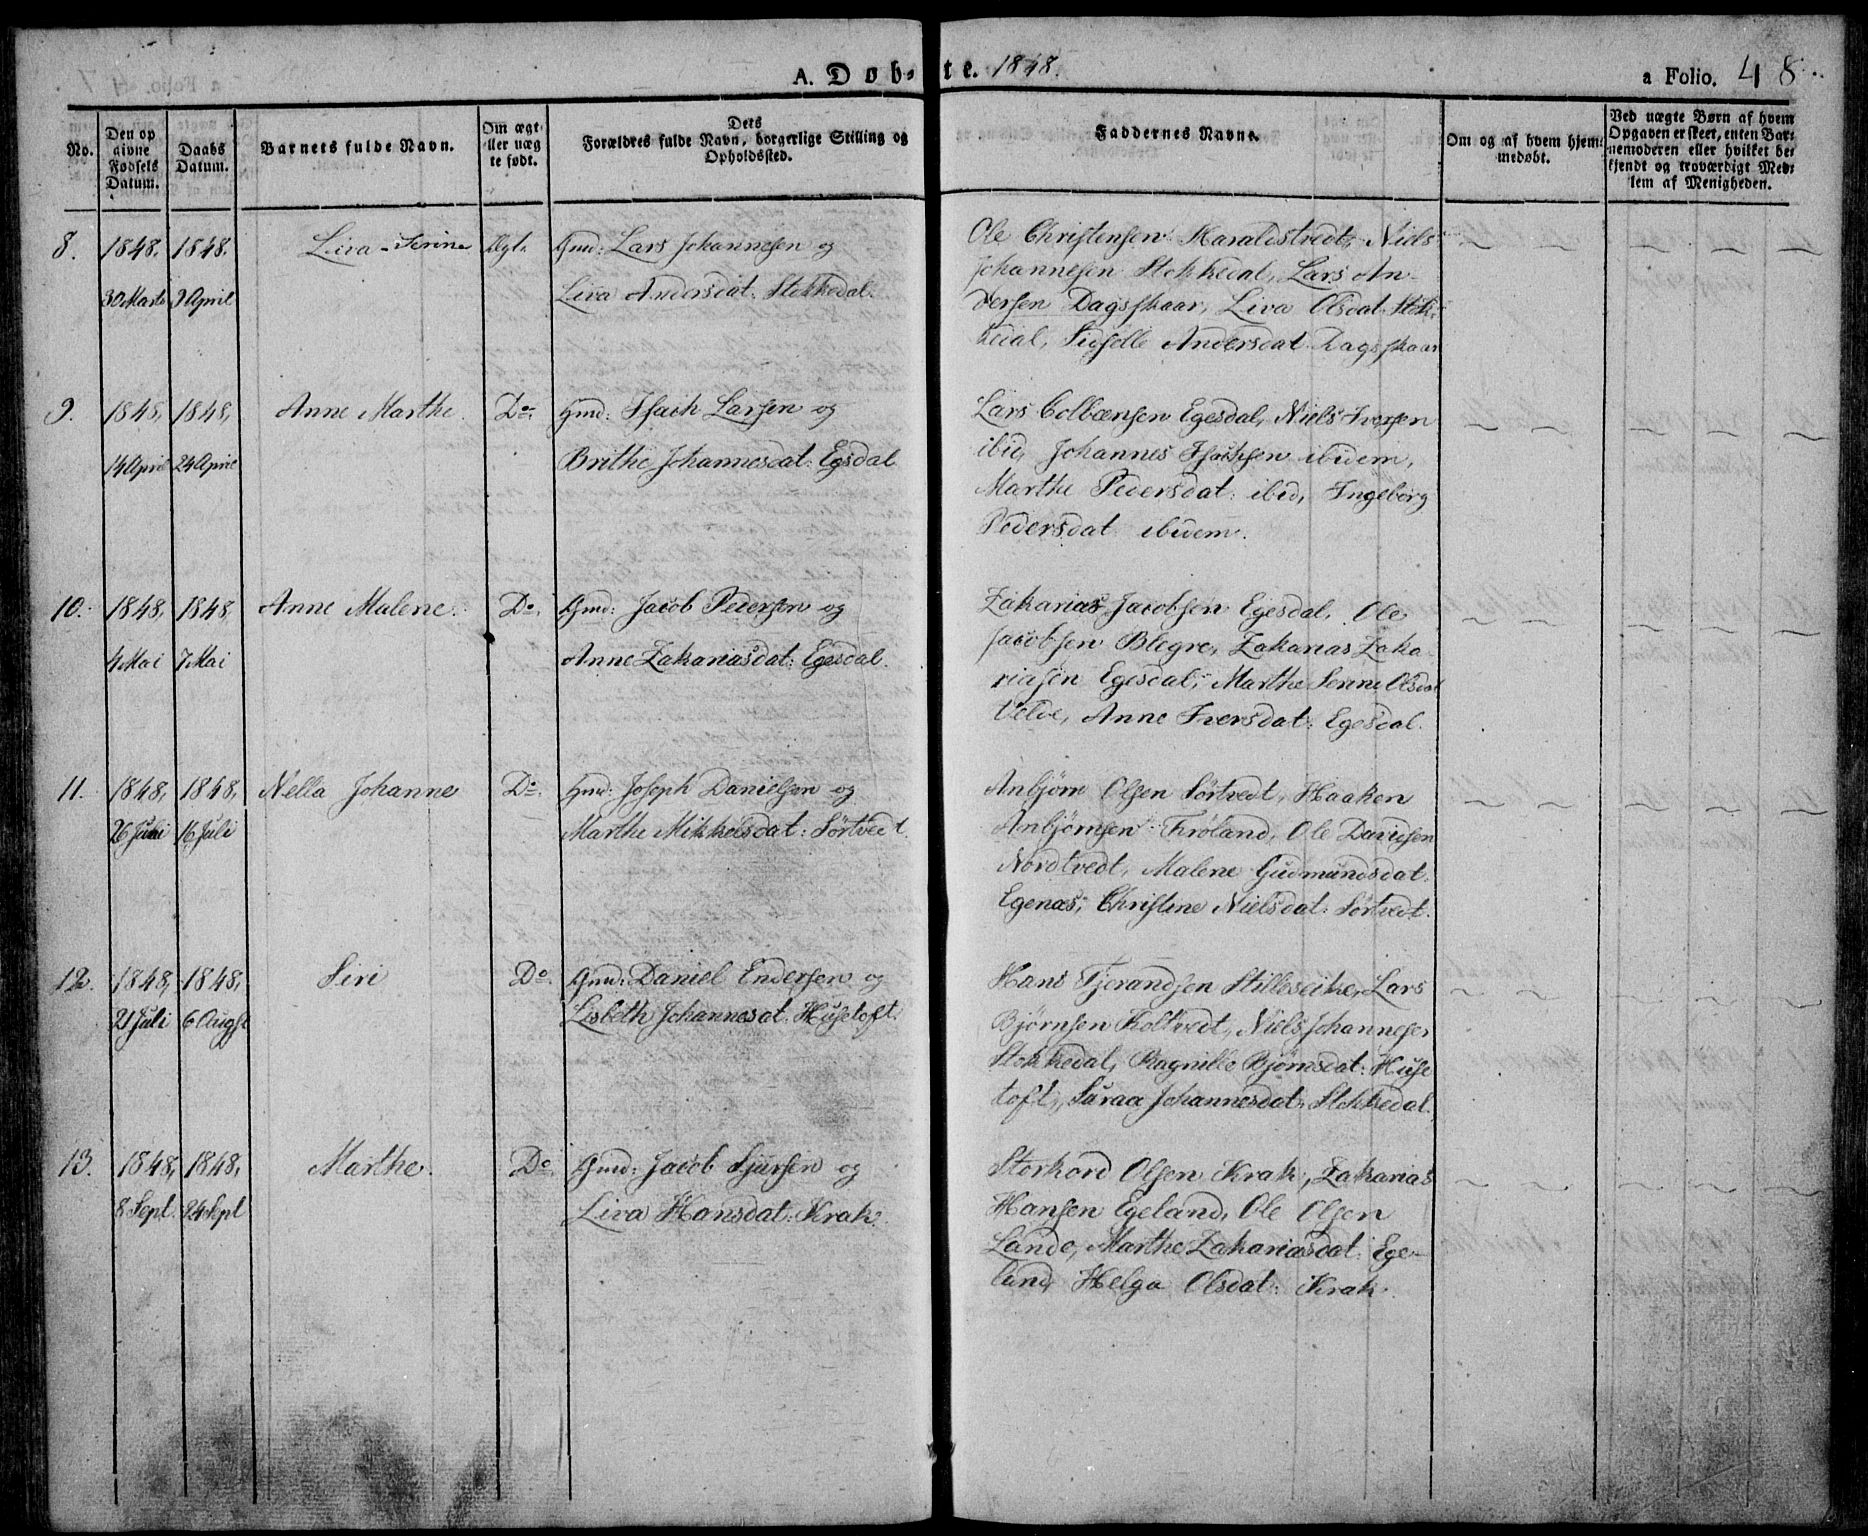 A. Døb-te. 1848.
a Folio. 48.
No.
Den opgivne Fødsels Datum.
Daabs Datum.
Barnets fulde Navn.
Om ægte eller uægte født.
Dets Forældres fulde Navn, borgerlige Stilling og Opholdssted.
Faddernes Navne.
Om og af hvem hjemmedøbt.
Ved uægte Børn af hvem Opgaven er skeet, enten Barnemoderen eller hvilket bekjendt og troværdigt Medlem af Menigheden.
8. 1848. 1848. Liva Serine Ægt. Gmd: Lars Johannesen og
30 Marts 9 April Liva Andersdat: Stokkedal.
Ole Christensen Haraldstvedt, Niels
Johannesen Stokkedal, Lars An-
dersen Dagsskaar, Liva Olsdat Stok-
kedal, Sidselle Andersdat Dagsskaar
9. 1848, 1848, Anne Marthe. Do. Gmd: Isach Larsen og
14 April 24 April Brithe Johannesdat: Egsdal
Lars Colbænsen Egesdal, Niels Iversen
ibid, Johannes Isachsen ibidem,
Marthe Pedersdat: ibid, Ingeborg
Pedersdat ibidem.
10. 1848, 1848 Anne Malene. Do. Gmd: Jacob Pedersen og
4 Mai 7 Mai Anne Zakariasdat: Egesdal.
Zakarias Jacobsen Egesdal, Ole
Jacobsen Blegre, Zakarias Zaka-
riasen Egesdal, Marthe Serine Olsdat
Velde, Anne Iversdat: Egesdal.
11. 1848, 1848, Nella Johanne Do. Gmd: Joseph Danielsen og
26 Juni 16 Juli Marthe Mikkelsdat: Sørtvedt.
Anbjørn Olsen Sørtvedt, Haaken
Anbjørnsen Frøland, Ole Davidsen
Nordtvedt, Malene Gudmundsdat.
Egenæs, Christine Nielsdat: Sørtvedt.
12. 1848, 1848, Siri Do. Gmd: Daniel Endersen og
21 Juli 6 Augst Lisbeth Johannesdat: Husetoft.
Hans Tjerandsen Stilleseike, Lars
Bjørnsen Koltvedt, Niels Johannesen
Stokkedal, Ragnille Bjørnsdat: Huse
toft, Saraa Johannesdat: Stokkedal.
13. 1848, 1848, Marthe. Do. Gmd: Jacob Sjursen og
8 Sept. 24 Sept Liva Hansdat: Krak.
Storkord Olsen Krak, Zakarias
Hansen Egeland, Ole Olsen
Lande, Marthe Zakariasdat: Ege-
land, Helga Olsdat: Krak.